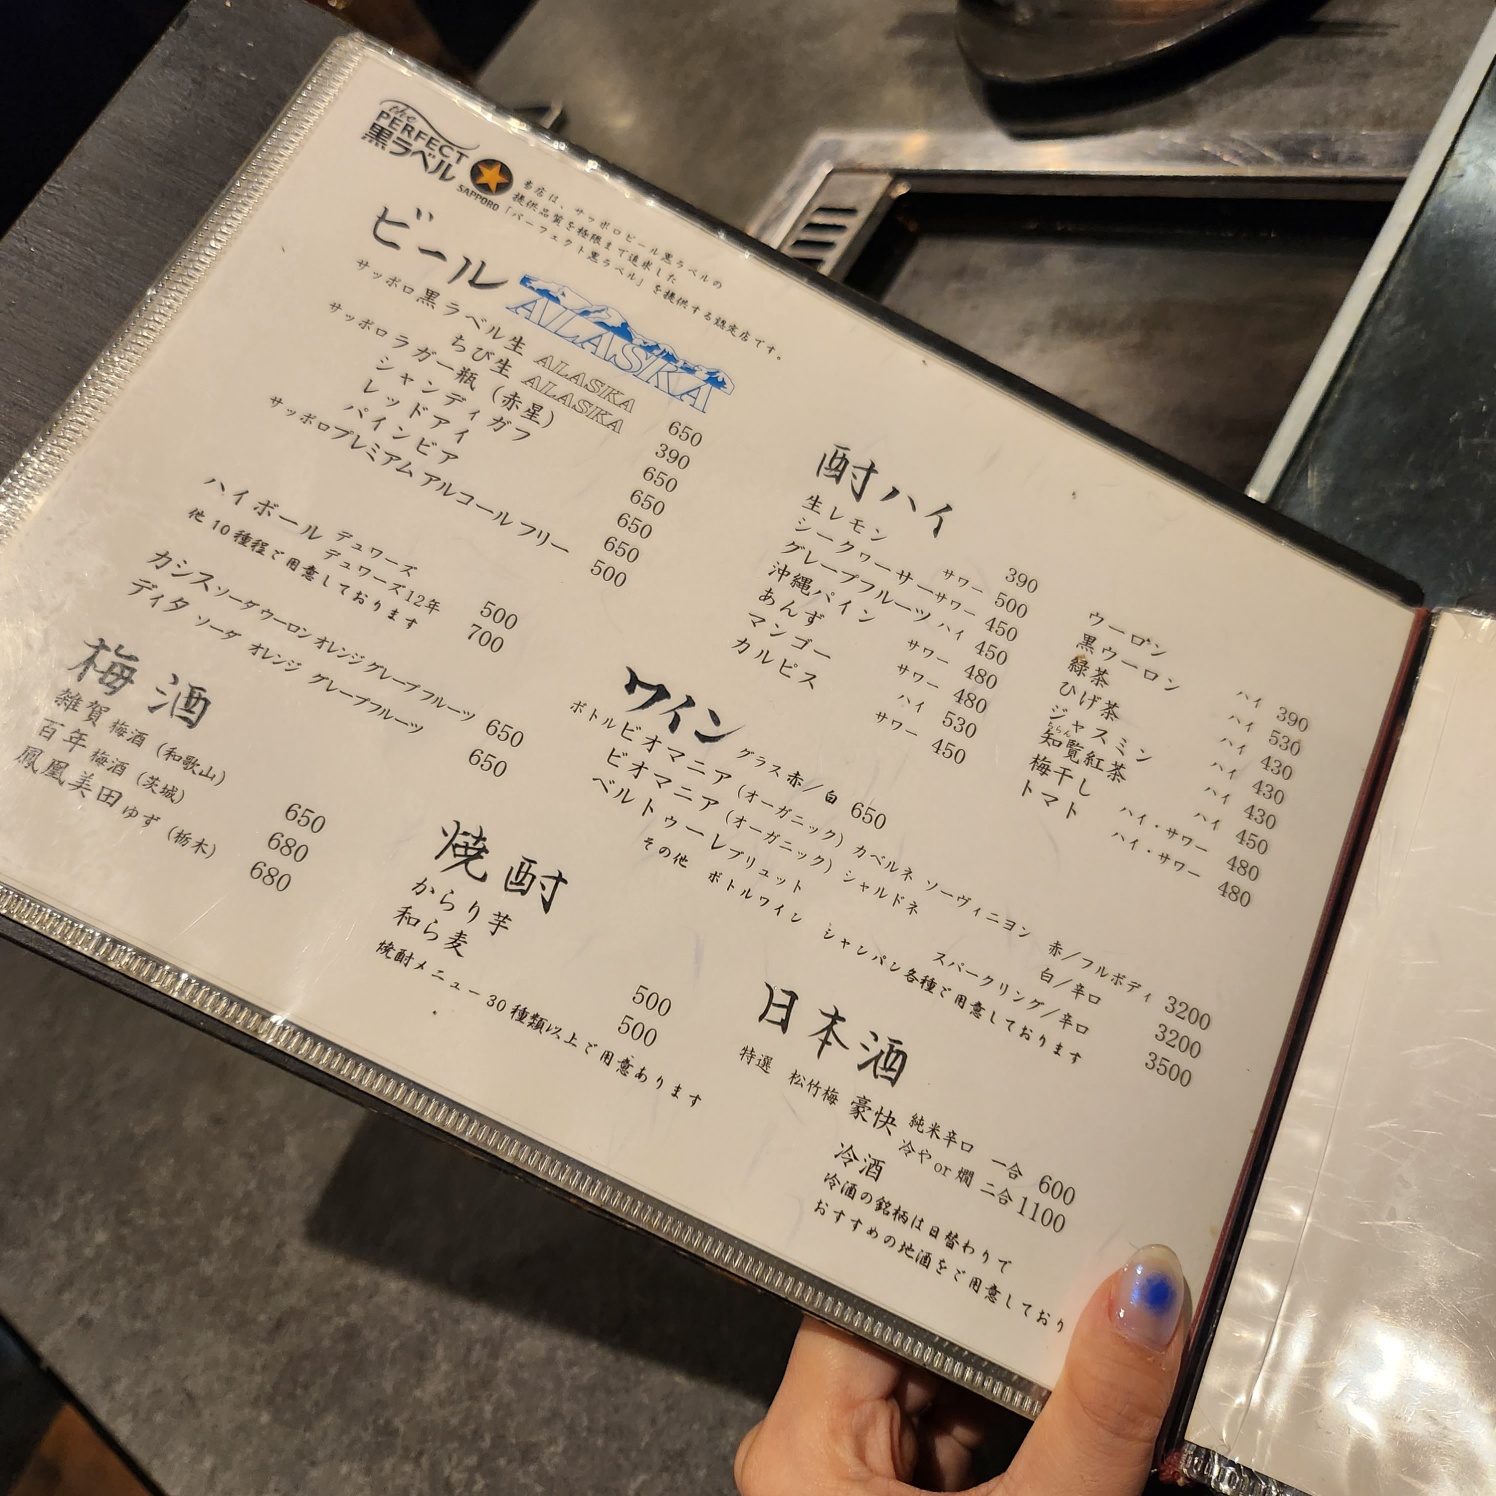 the
PERFECT
黒ラベル
SAPPORO
当店は、サッポロビール黒ラベルの
提供品質を極限まで追求した
「パーフェクト黒ラベル」を提供する認定店です。
ビール
ALASKA
サッポロ黒ラベル生 ALASKA 650
ちび生 ALASKA 390
サッポロラガー瓶（赤星） 650
シャンディガフ 650
レッドアイ 650
パインビア 650
サッポロプレミアムアルコールフリー 500
ハイボール デュワーズ 500
デュワーズ12年 700
他10種程ご用意しております
カシス ソーダ ウーロン オレンジ グレープフルーツ 650
ディタ ソーダ オレンジ グレープフルーツ 650
梅酒
雑賀 梅酒（和歌山） 650
百年 梅酒（茨城） 680
鳳凰美田 ゆず（栃木） 680
酎ハイ
生レモン サワー 390
シークワーサー サワー 500
グレープフルーツ ハイ 450
沖縄パイン サワー 450
あんず サワー 480
マンゴー サワー 480
カルピス ハイ 530
サワー 450
ウーロン ハイ 390
黒ウーロン ハイ 530
緑茶 ハイ 430
ひげ茶 ハイ 430
ジャスミン ハイ 430
ちらん
知覧紅茶 ハイ 450
梅干し ハイ・サワー 480
トマト ハイ・サワー 480
ワイン グラス 赤／白 650
ボトル ビオマニア（オーガニック）カベルネ ソーヴィニヨン 赤／フルボディ 3200
ビオマニア（オーガニック）シャルドネ 白／辛口 3200
ベルトゥーレ ブリュット スパークリング／辛口 3500
その他 ボトルワイン シャンパン各種ご用意しております
焼酎
からり芋 500
和ら麦 500
焼酎メニュー30種類以上ご用意あります
日本酒
特選 松竹梅 豪快 純米辛口 一合 600
冷や or 燗 二合 1100
冷酒
冷酒の銘柄は日替わりで
おすすめの地酒をご用意しており